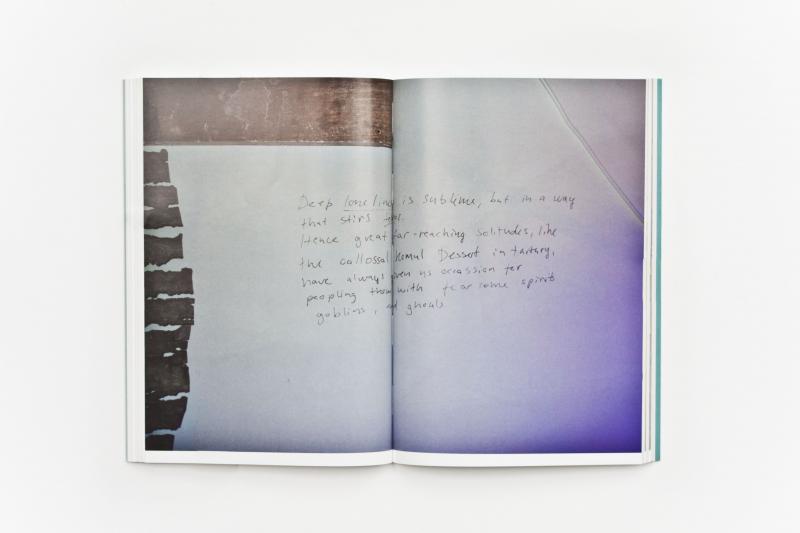 Deep is sublime, but in a way
that stirs
Hence great far-reaching solitudes, like
the collossal Komul Dessert in tartary,
have always given us occassion for
peopling them with fearsome spirits
goblins, and ghouls